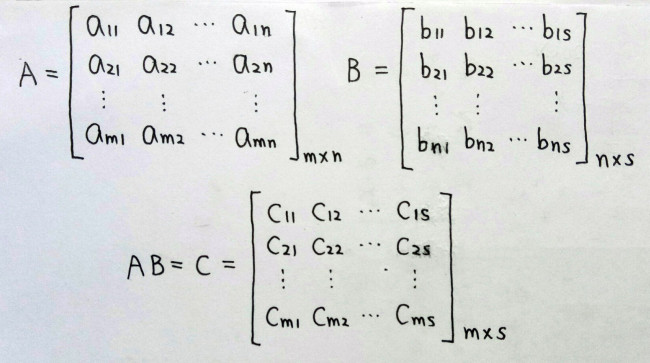 A = [ a₁₁ a₁₂ ⋯ a₁ₙ
a₂₁ a₂₂ ⋯ a₂ₙ
⋮ ⋮ ⋮
aₘ₁ aₘ₂ ⋯ aₘₙ ] m×n
B = [ b₁₁ b₁₂ ⋯ b₁ₛ
b₂₁ b₂₂ ⋯ b₂ₛ
⋮ ⋮ ⋮
bₙ₁ bₙ₂ ⋯ bₙₛ ] n×s
AB = C = [ C₁₁ C₁₂ ⋯ C₁ₛ
C₂₁ C₂₂ ⋯ C₂ₛ
⋮ ⋮ ⋮
Cₘ₁ Cₘ₂ ⋯ Cₘₛ ] m×s